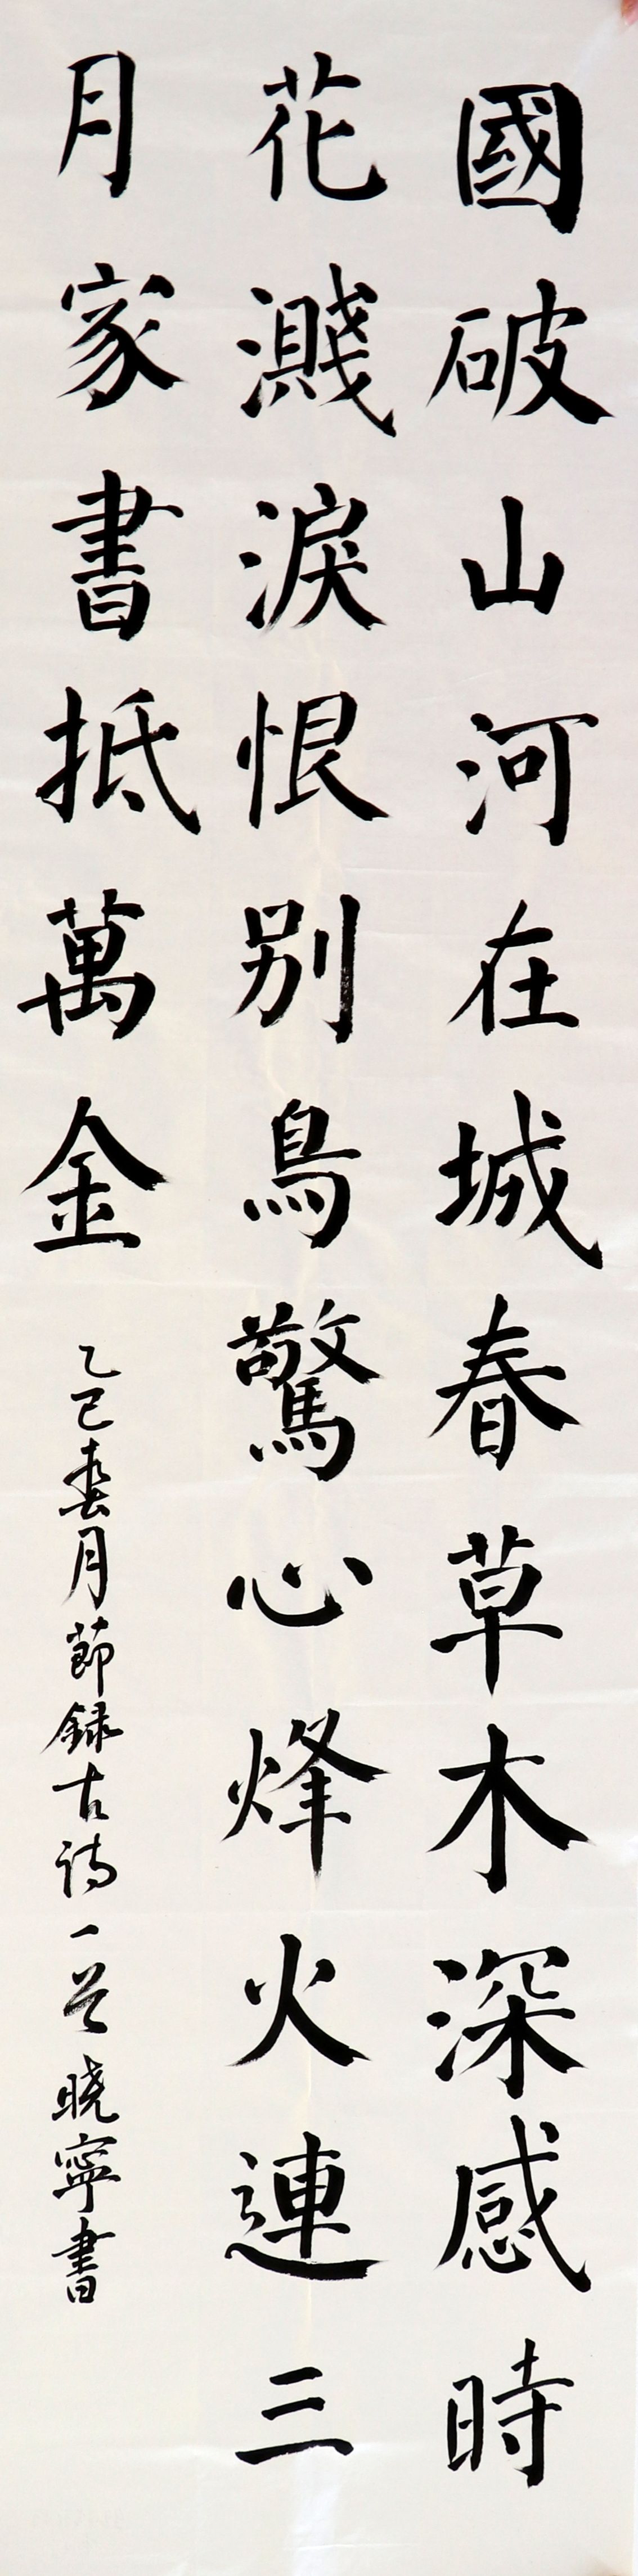 國破山河在城春草木深感時
花濺淚恨别鳥驚心烽火連三
月家書抵萬金
乙巳春月節録古詩一首曉寧書